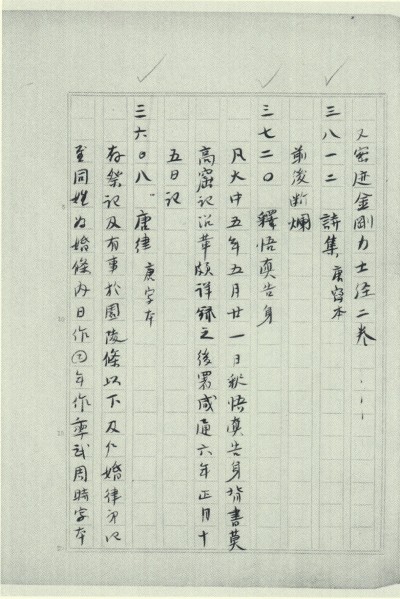 又密迹金剛力士經二卷
三八一二 詩集 唐寫本
前後斷爛
三七二〇 釋悟真告身
凡大中五年五月廿一日敕悟真告身背書莫
高窟記沿革頗詳錄之後署咸通六年正月十
五日記
三六〇八 唐律 唐字本
存祭祀及有事於園陵條以下及戶婚律
至同姓為婚條內日作𡆠年作𠡦武周時字本